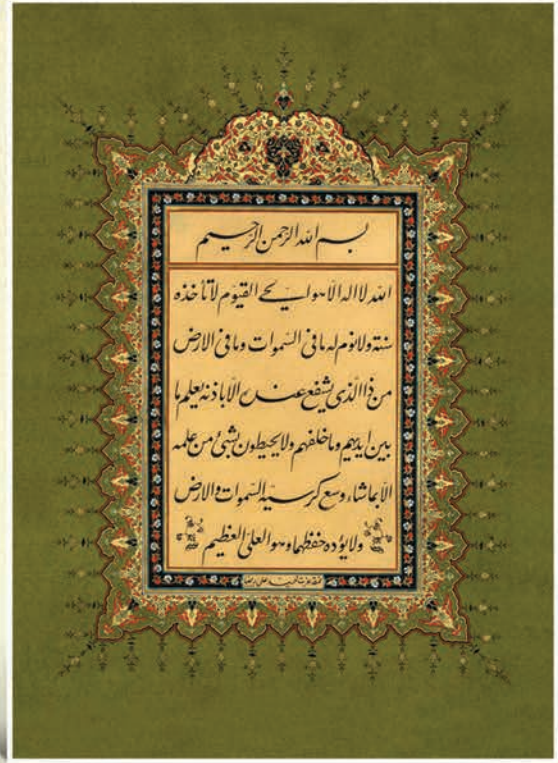 بسم الله الرحمن الرحيم
الله لا اله الا هو الحي القيوم لا تأخذه
سنة ولا نوم له ما في السموات وما في الارض
من ذا الذي يشفع عنده الا باذنه يعلم ما
بين ايديهم وما خلفهم ولا يحيطون بشئ من علمه
الا بما شاء وسع كرسيه السموات والارض
ولا يؤده حفظهما وهو العلي العظيم